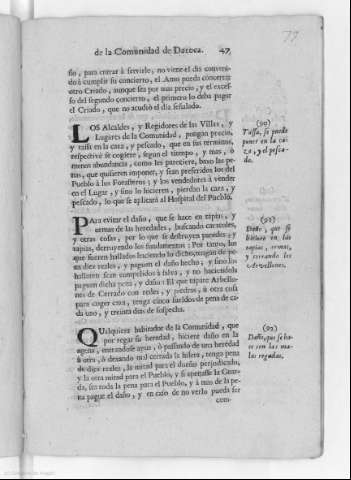 de la Comunidad de Daroca. 47
ño, para entrar à servirle, no viene el dia conveni-
do à cumplir su concierto, el Amo pueda concertar
otro Criado, aunque sea por mas precio, y el exces-
so del segundo concierto, el primero lo deba pagar
el Criado, que no acudiò el dia señalado.
LOS Alcaldes, y Regidores de las Villas, y
Lugares de la Comunidad, pongan precio,
y tassa en la caza, y pescado, que en sus terminos,
respectivè se cogiere, segun el tiempo, y mas, ò
menos abundancia, como les pareciere, baxo las pe-
nas, que quisieren imponer, y sean preferidos los del
Pueblo à los Forasteros; y los vendedores à vender
en el Lugar, y sino lo hicieren, pierdan la caza, y
pescado, lo que se aplicarà al Hospital del Pueblo.
(90)
Tassa, se puede
poner en la ca-
za, y el pesca-
do.
Para evitar el daño, que se hace en tapias, y
yermas de las heredades, buscando caracoles,
y otras cosas, por lo que se destruyen paredes, y
tapias, derruyendo los fundamentos: Por tanto, los
que fueren hallados haciendo lo dicho, tengan de pe-
na diez reales, y paguen el daño hecho, y sino los
hallaren sean compelidos à salva, y no haciendola
paguen dicha pena, y daño: El que tapare Arbello-
nes de Cerrado con redes, y piedras, ù otra cosa
para coger caza, tenga cinco sueldos de pena de ca-
da uno, y treinta dias de sospecha.
(91)
Daño, que se
hiciere en las
tapias, yermas,
y cerrando los
Arvellones.
QUalquiere habitador de la Comunidad, que
por regar su heredad, hiciere daño en la
agena, entrandose agua, ò passando de una heredad
à otra, ò dexando mal cerrada la hilera, tenga pena
de diez reales, la mitad para el dueño perjudicado,
y la otra mitad para el Pueblo, y si apenasse la Guar-
da, sea toda la pena para el Pueblo, y à mas de la pe-
na pague el daño, y en caso de no verlo pueda ser
com-
(92)
Daño, que se ha-
ce con las ma-
las regadas.